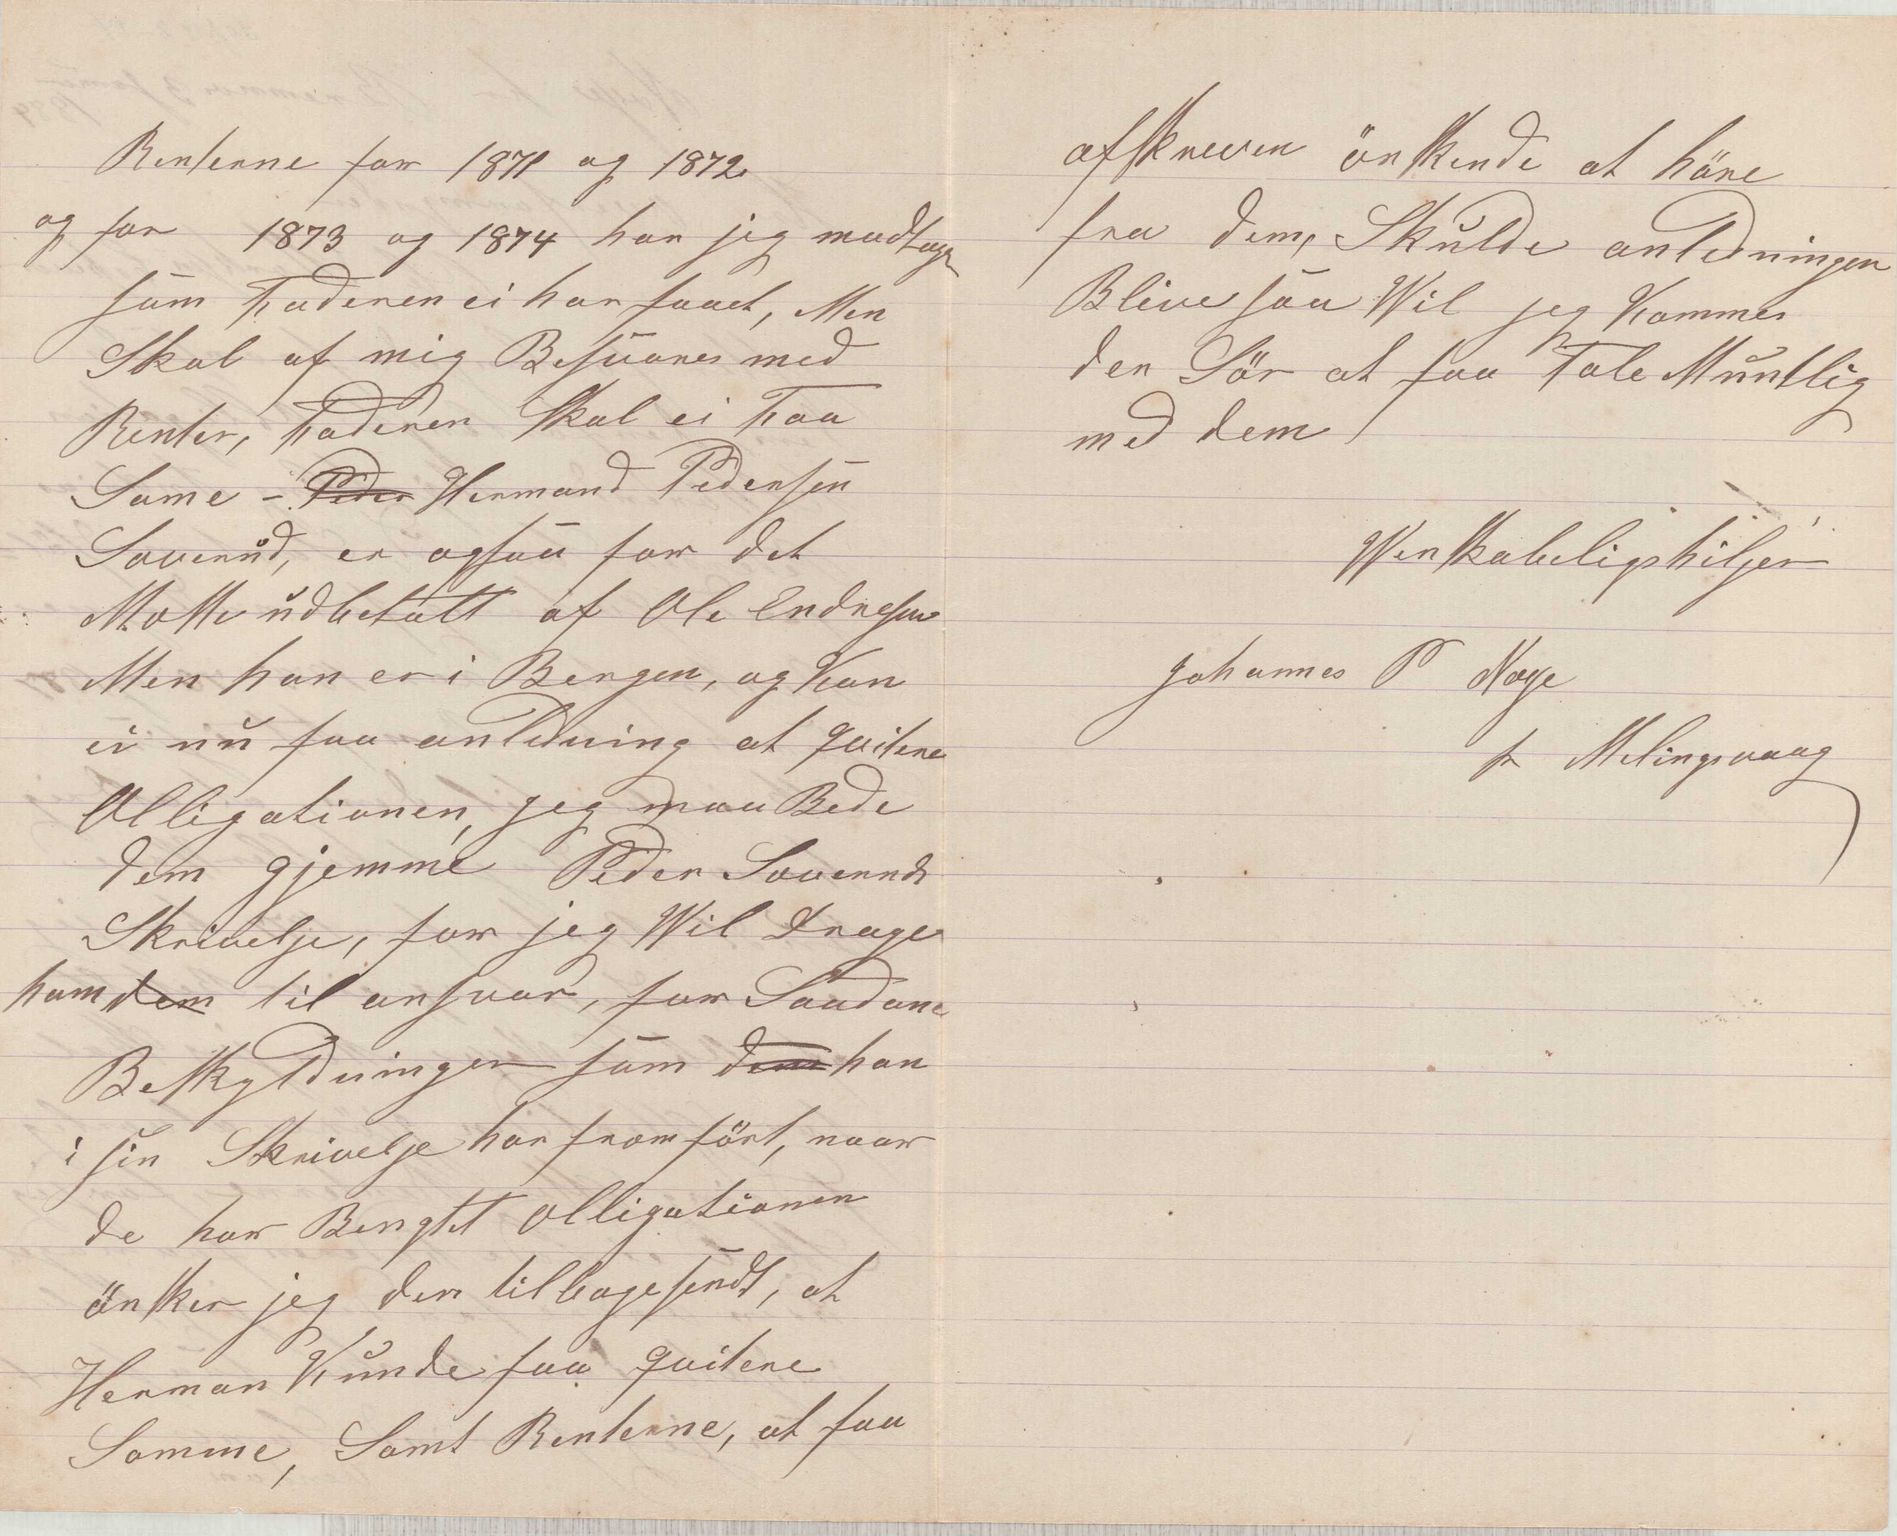 Renterne for 1871 og 1872
og for 1873 og 1874 har jeg modtaget
som Faderen ei har faaet, Men
Skal af mig Besvares med
Renter, Faderen Skal ei Faa
Same - Peder Hermand Pedersen
Soverud, er ogsaa for det
Motte udbetalt af Ole Endresen
Men han er i Bergen, og Kan
ei nu faa anledning at qvitere
Olligationen, jeg maa Bede
dem gjemme Peder Soveruds
Skrivelse, for jeg Wil drage
ham dem til ansvar, for Saadane
Beskyldninger som dem han
i sin Skrivelse har fromfört, naar
de har Bengtet olligationen
önsker jeg den tilbagesendt, at
Herman Kunde faa qvitere
Somme, Samt Renterne, at faa
afskreven önskende at höre
fra dem, Skulde anledningen
Blive saa Wil jeg Kommer
der Sör at faa Tale Muntlig
med dem
Wenskabeligst hilser
Johannes P Noge
pr Melingsvaag